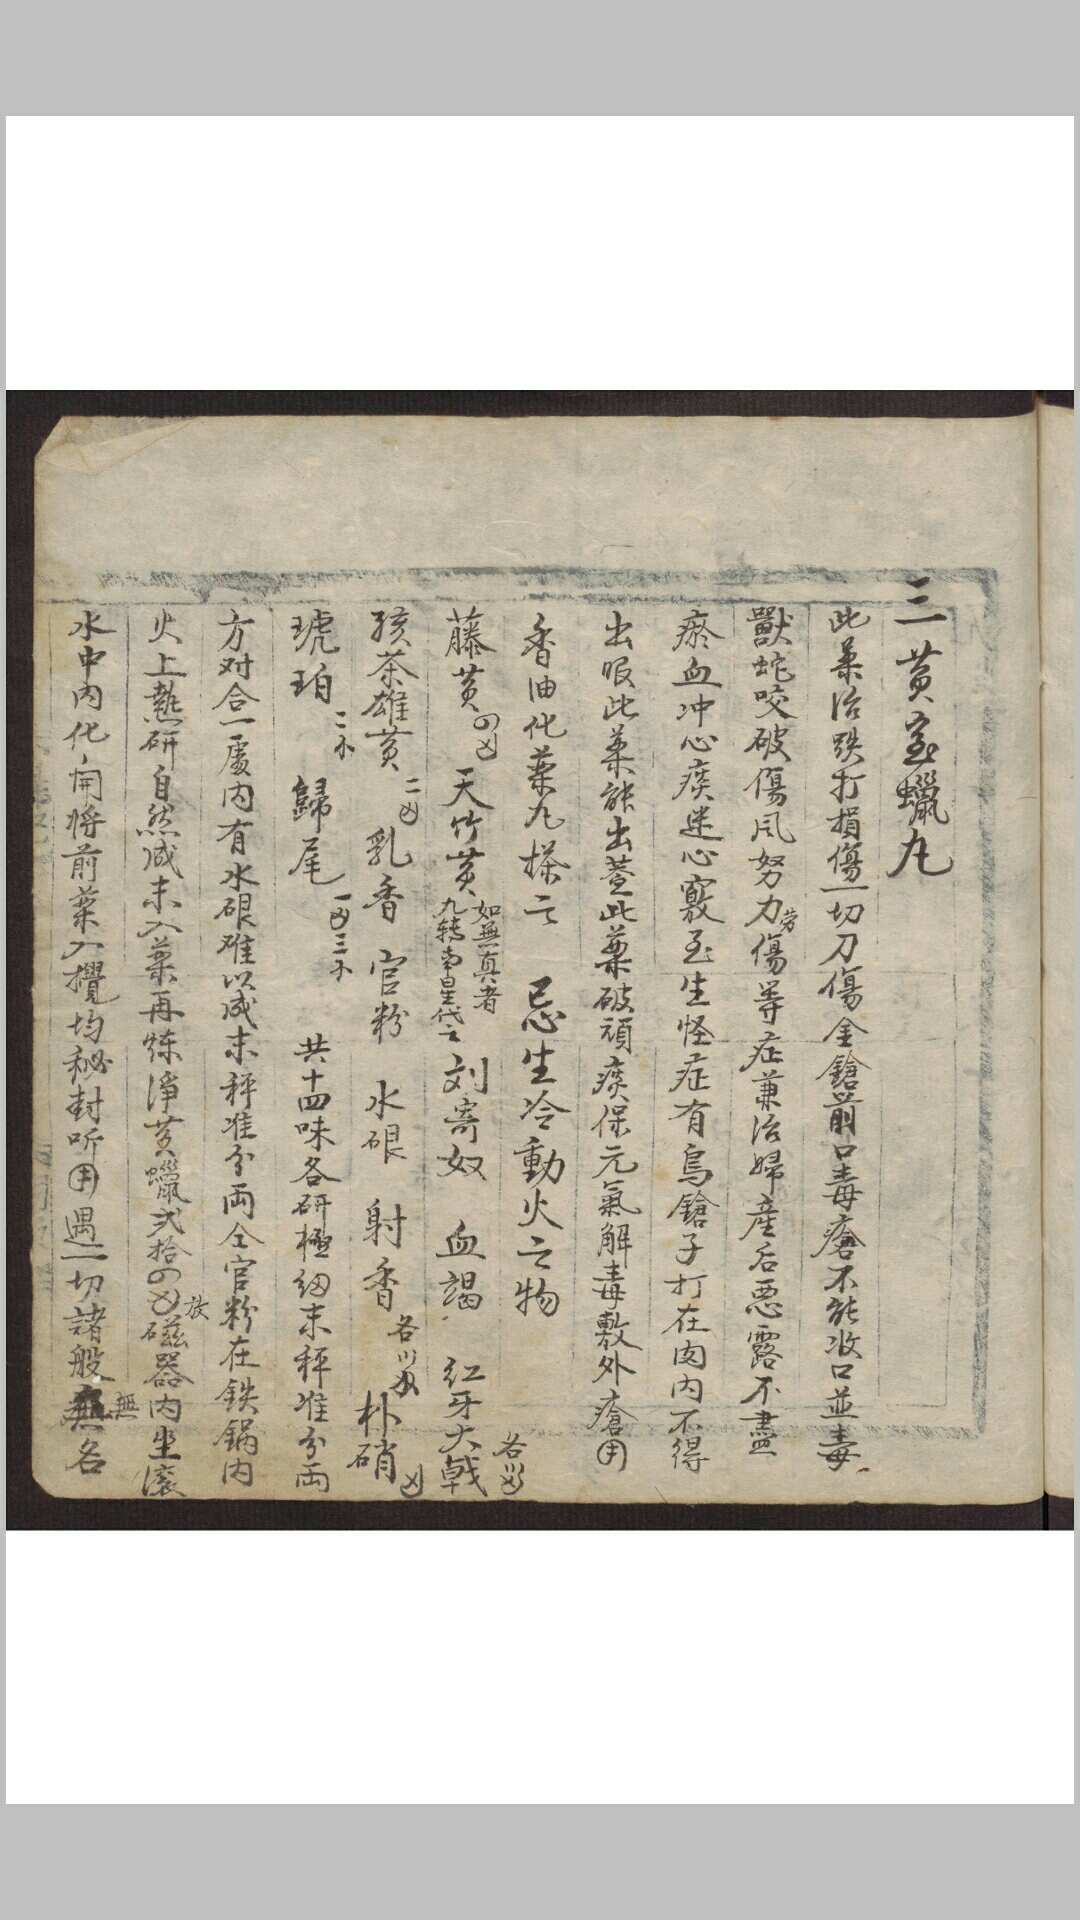 三黄宝蠟丸
此薬治跌打損傷一切刀傷金鎗箭口毒瘡不能收口並毒
獸蛇咬破傷風努力勞傷等症兼治婦産后悪露不盡
瘀血冲心痰迷心竅至生怪症有鳥鎗子打在肉内不得
出服此薬能出蓋此薬破頑痰保元氣解毒敷外瘡用
香油化薬丸搽之 忌生冷動火之物
藤黄 天竹黄 如無真者九轉南星代之 刘寄奴 血竭 红牙大戟 各
孩茶雄黄 乳香 官粉 水硍 射香 各 朴硝
琥珀 歸尾 共十四味各研極細末秤准分両
方对合一處内有水硍难以成末秤准分両仝官粉在鉄鍋内
火上熱研自然成末入薬再煉淨黄蠟弍拾 放磁器内坐滚
水中内化開将前薬入攪均秘封听用遇一切諸般無名